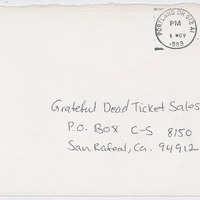 PORTLAND OR 972
PM
1 NOV
1989
Grateful Dead Ticket Sales
P.O. Box C-S 8150
San Rafael, Ca. 94912